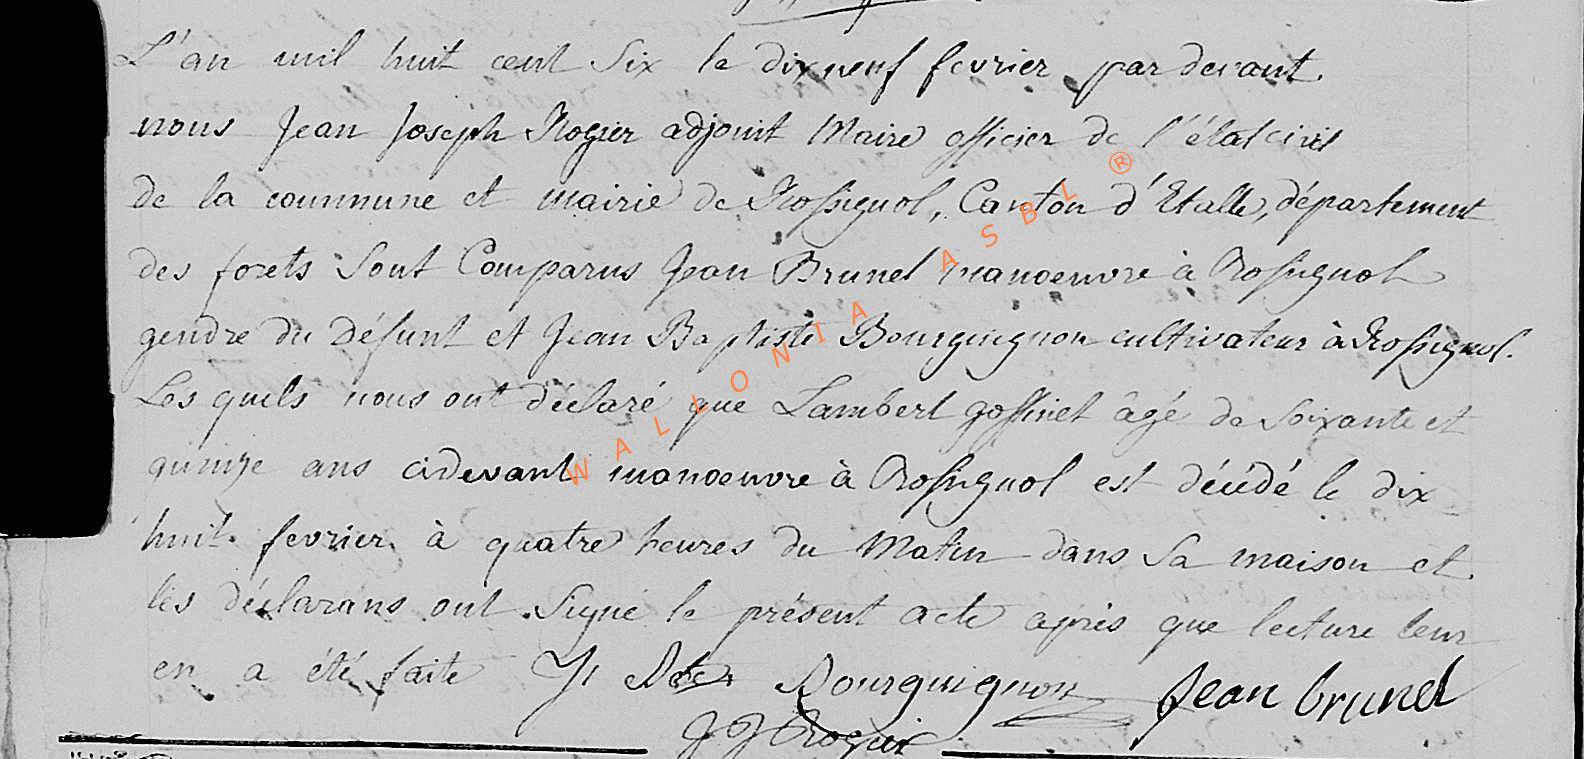 L'an mil huit cent Six le dix neuf fevrier par devant
nous Jean Joseph Rogier adjoint Maire officier de l'état civil
de la commune et mairie de Rossignol, Canton d'Etalle, département
des forets Sont Comparus Jean Brunel manoeuvre à Rossignol
gendre du Défunt et Jean Baptiste Bourguignon cultivateur à Rossignol.
Les quels nous ont déclaré que Lambert gossinet âgé de Soixante et
quinze ans cidevant manoeuvre à Rossignol est décédé le dix
huit fevrier à quatre heures du Matin dans Sa maison et
les déclarans ont Signé le présent acte après que lecture leur
en a été faite J Bte Bourguignon Jean brunel
J J Rogier
WALLONIA ASBL ®